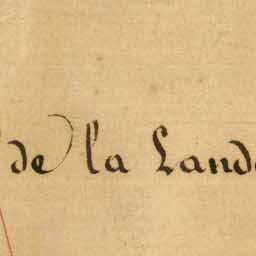 de la Land